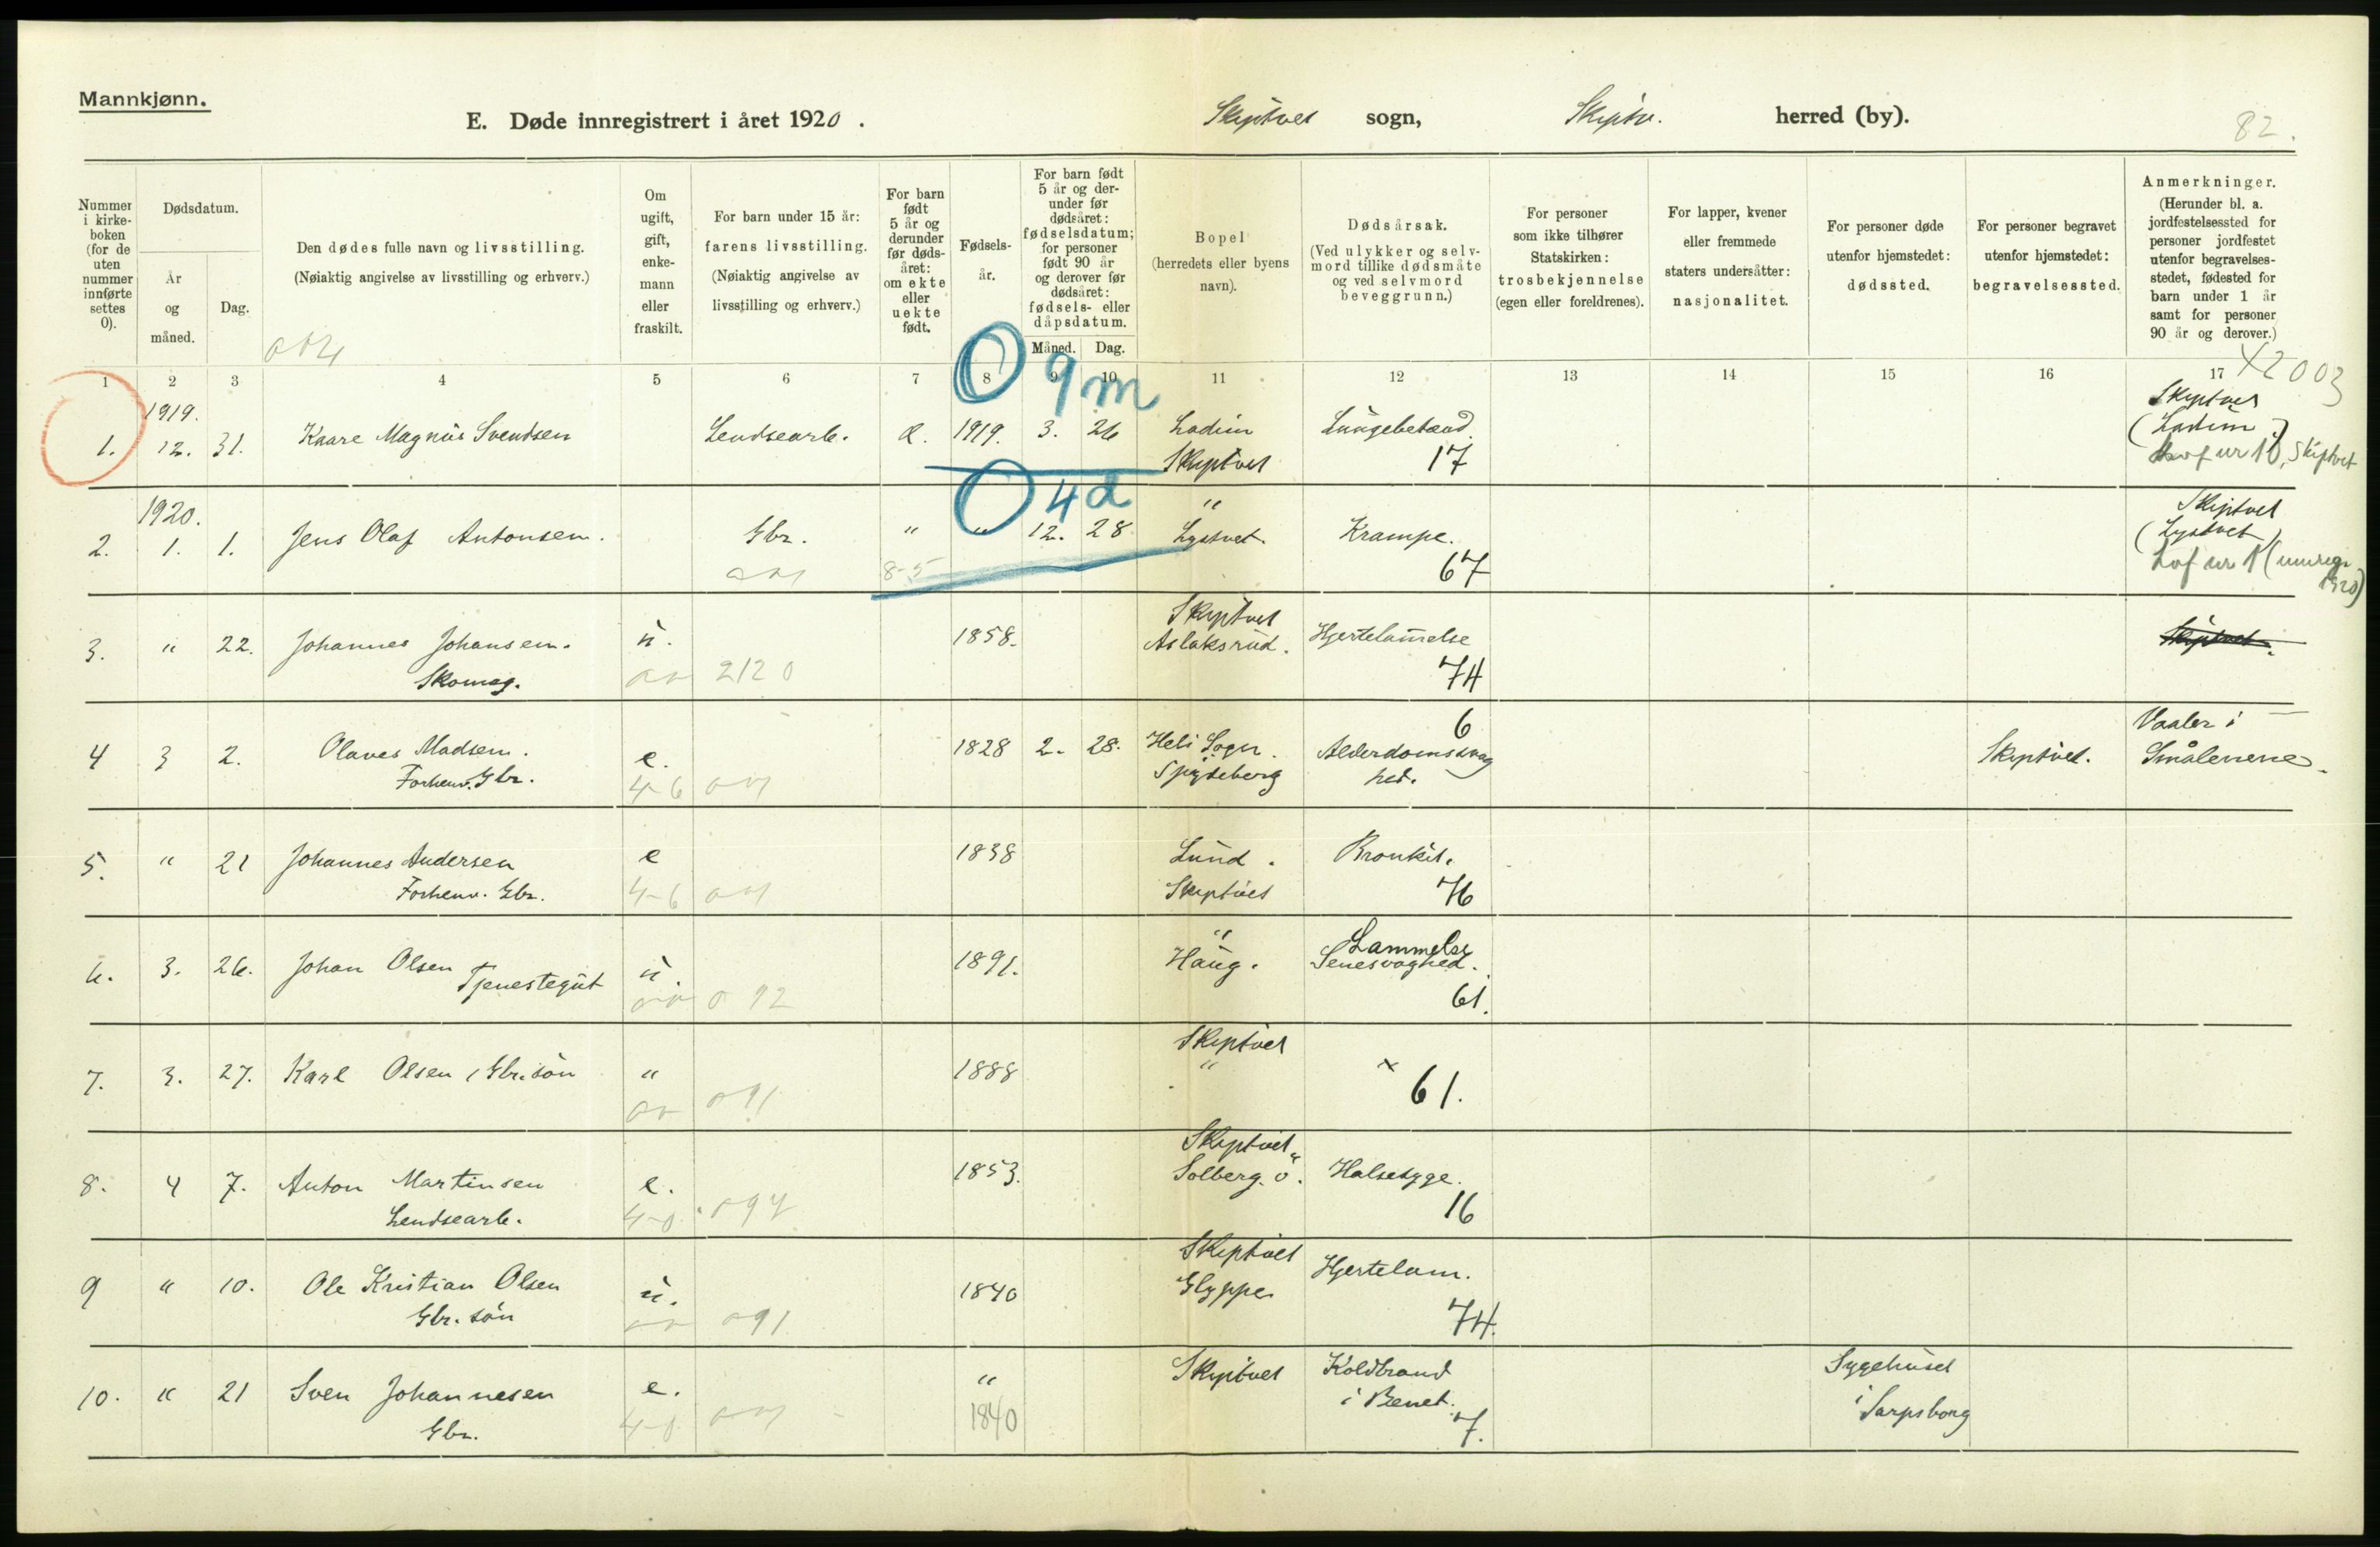 Mannkjønn.
E. Døde innregistrert i året 1920. Skiptvet sogn, Skiptv. herred (by).
82.
Nummer i kirke-boken (for de uten nummer innførte settes 0).
Dødsdatum.
År og måned.
Dag.
Den dødes fulle navn og livsstilling.
(Nøiaktig angivelse av livsstilling og erhverv.)
Om ugift, gift, enke-mann eller fraskilt.
For barn under 15 år:
farens livsstilling.
(Nøiaktig angivelse av livsstilling og erhverv.)
For barn født 5 år og derunder før døds-året: om ekte eller uekte født.
Fødsels-år.
For barn født 5 år og der-under før dødsåret: fødselsdatum; for personer født 90 år og derover før dødsåret: fødsels- eller dåpsdatum.
Måned. Dag.
Bopel
(herredets eller byens navn).
Dødsårsak.
(Ved ulykker og selv-mord tillike dødsmåte og ved selvmord beveggrunn.)
For personer som ikke tilhører Statskirken: trosbekjennelse (egen eller foreldrenes).
For lapper, kvener eller fremmede staters undersåtter: nasjonalitet.
For personer døde utenfor hjemstedet: dødssted.
For personer begravet utenfor hjemstedet: begravelsessted.
Anmerkninger.
(Herunder bl. a. jordfestelsessted for personer jordfestet utenfor begravelses-stedet, fødested for barn under 1 år samt for personer 90 år og derover.)
1 2 3 4 5 6 7 8 9 10 11 12 13 14 15 16 17
0 9m
X2003
1919.
1. 12. 31. Kaare Magnus Svendsen Lendsearb. 1919. 3. 26 Ladim Skiptvet Lungebetænd. 17 Skiptvet (Ladim)
0 4d
1920.
2. 1. 1. Jens Olaf Antonsen. Gbr. " " 12. 28 " Lystvet. Krampe. 67 Skiptvet (Lystvet)
8-5
3. " 22. Johannes Johansen. Skomag. u. 1858. Skiptvet Aslaksrud. Hjertelammelse 74 Skiptvet.
2120
4 3 2. Olaves Madsen. Forhenv. Gbr. e. 1828 2. 28. Heli Sogn. Spydeberg Alderdomssvaghed. 6 Skiptvet. Vaaler i Smålenene.
4-6
5. " 21 Johannes Andersen Forhenv. Gbr. e 1838 Lund. Skiptvet Bronkit. 76
4-6
6. 3. 26. Johan Olsen Tjenestegut u. 1891. " Haug. Lammelse Senesvaghed. 61.
7. 3. 27. Karl Olsen, Gbr.søn " 1888 Skiptvet " x 61.
8. 4 7. Anton Martinsen Lendsearb. e. 1853. Skiptvet " Solberg. ø. Halsesyge. 16
9 " 10. Ole Kristian Olsen Gbr. søn u. 1840 Skiptvet Glyppe. Hjertelam. 74.
10. " 21 Sven Johannesen Gbr. e. " 1840 Skiptvet Koldbrand i Benet. 7. Sygehuset i Sarpsborg